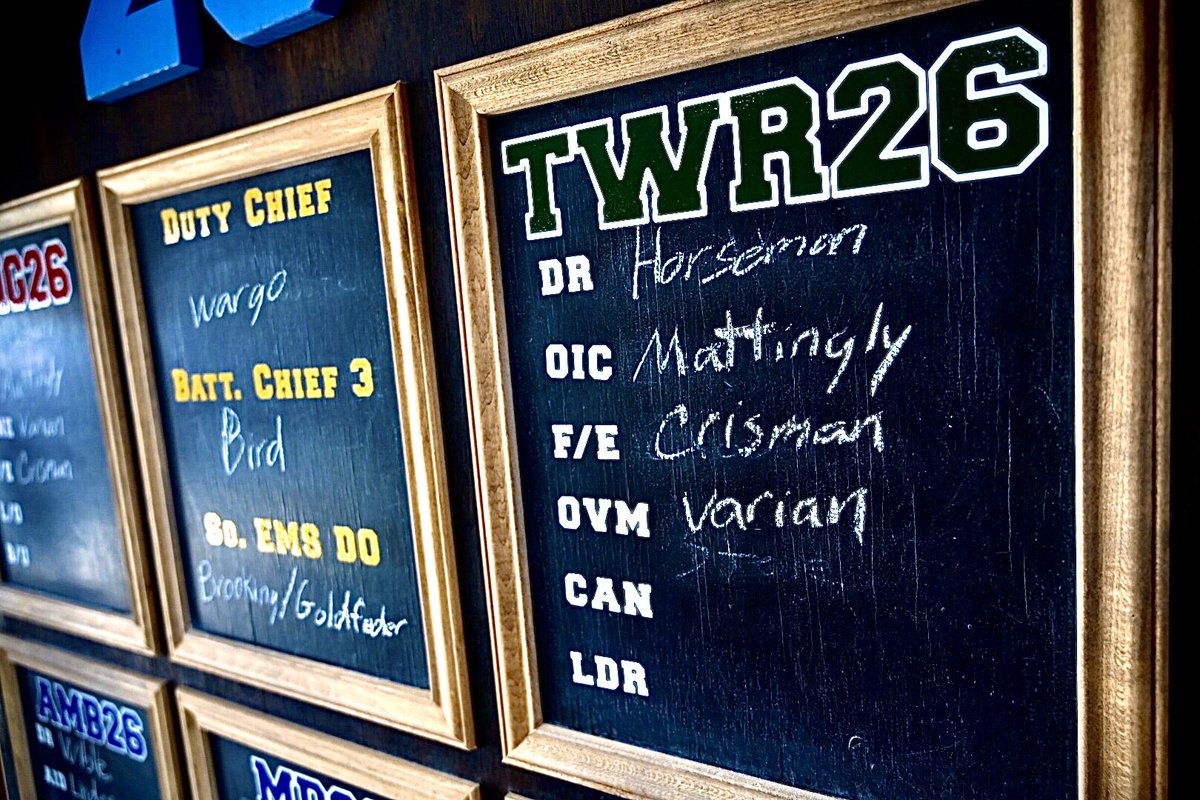 26
G26
Varian
Crisman
Duty Chief
Wargo
Batt. Chief 3
Bird
So. EMS DO
Brooking/Goldfeder
TWR26
DR Horseman
OIC Mattingly
F/E Crisman
OVM Varian
CAN
LDR
AMB26
DR
AID